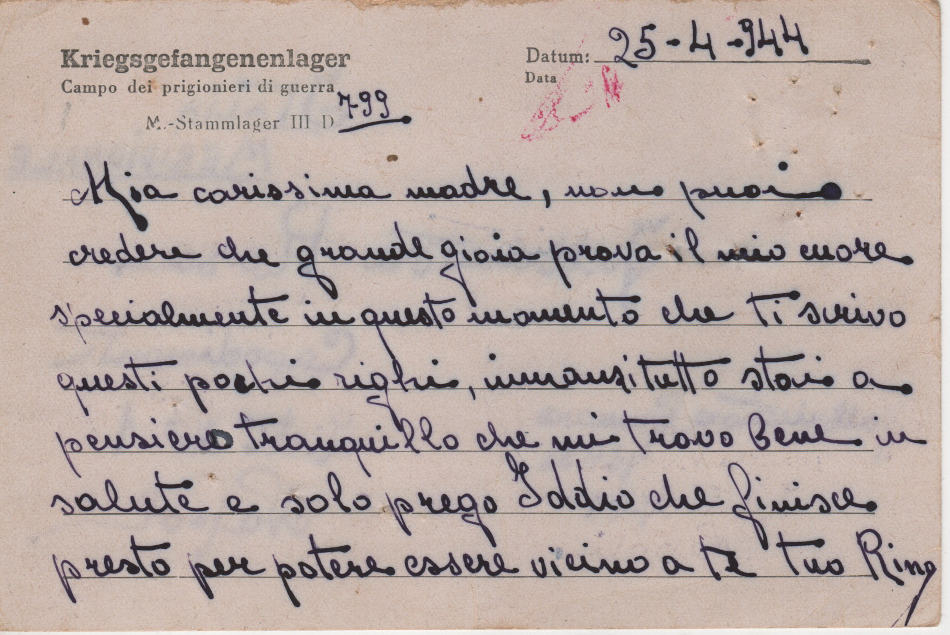 Kriegsgefangenenlager
Campo dei prigionieri di guerra
M.-Stammlager III D 799
Datum: 25-4-944
Data
Mia carissima madre, non puoi
credere che grande gioia prova il mio cuore
specialmente in questo momento che ti scrivo
questi pochi righi, innanzitutto stai a
pensiero tranquillo che mi trovo bene in
salute e solo prego Iddio che finisce
presto per potere essere vicino a te tuo Rino